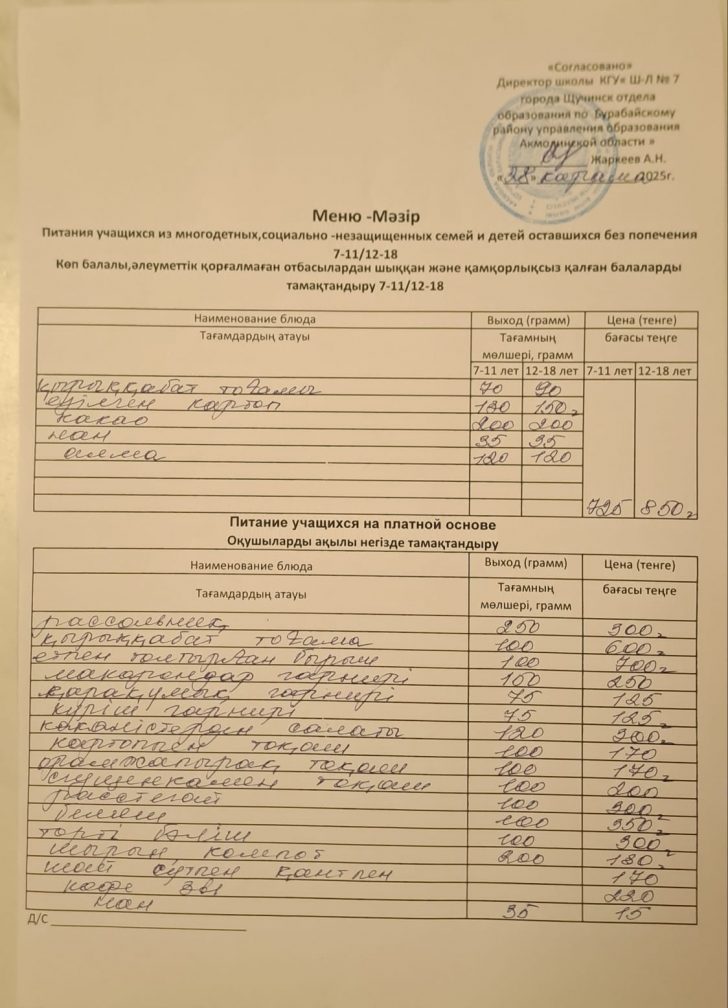 «Согласовано»
Директор школы КГУ« Ш-Л № 7
города Щучинск отдела
образования по Бурабайскому
району управления образования
Акмолинской области »
Жаркеев А.Н.
«28» қараша 2025г.
Меню -Мәзір
Питания учащихся из многодетных,социально -незащищенных семей и детей оставшихся без попечения
7-11/12-18
Көп балалы,әлеуметтік қорғалмаған отбасылардан шыққан және қамқорлықсыз қалған балаларды
тамақтандыру 7-11/12-18
Наименование блюда Выход (грамм) Цена (тенге)
Тағамдардың атауы Тағамның мөлшері, грамм бағасы теңге
7-11 лет 12-18 лет 7-11 лет 12-18 лет
қырыққабат тағамы 70 90
езілген картоп 130 150г
какао 200 200
нан 35 35
алма 120 120
725 850г
Питание учащихся на платной основе
Оқушыларды ақылы негізде тамақтандыру
Наименование блюда Выход (грамм) Цена (тенге)
Тағамдардың атауы Тағамның мөлшері, грамм бағасы теңге
рассольник 250 300г
қырыққабат тағама 100 600г
етпен толтырған бұрыш 100 700г
макарондар гарнирі 150 250
қарақұмық гарнирі 75 125
күріш гарнирі 75 125г
көкөністерден салаты 120 300г
картоппен тоқаш 100 170
орамжапырақ тоқаш 100 170г
сгущенкамен тоқаш 100 200
расстегай 100 300г
беляш 100 350г
тәтті бәліш 100 300г
шырын, компот 200 180г
шай сүтпен қантпен 170
кофе 3в1 220
нан 35 15
Д/С